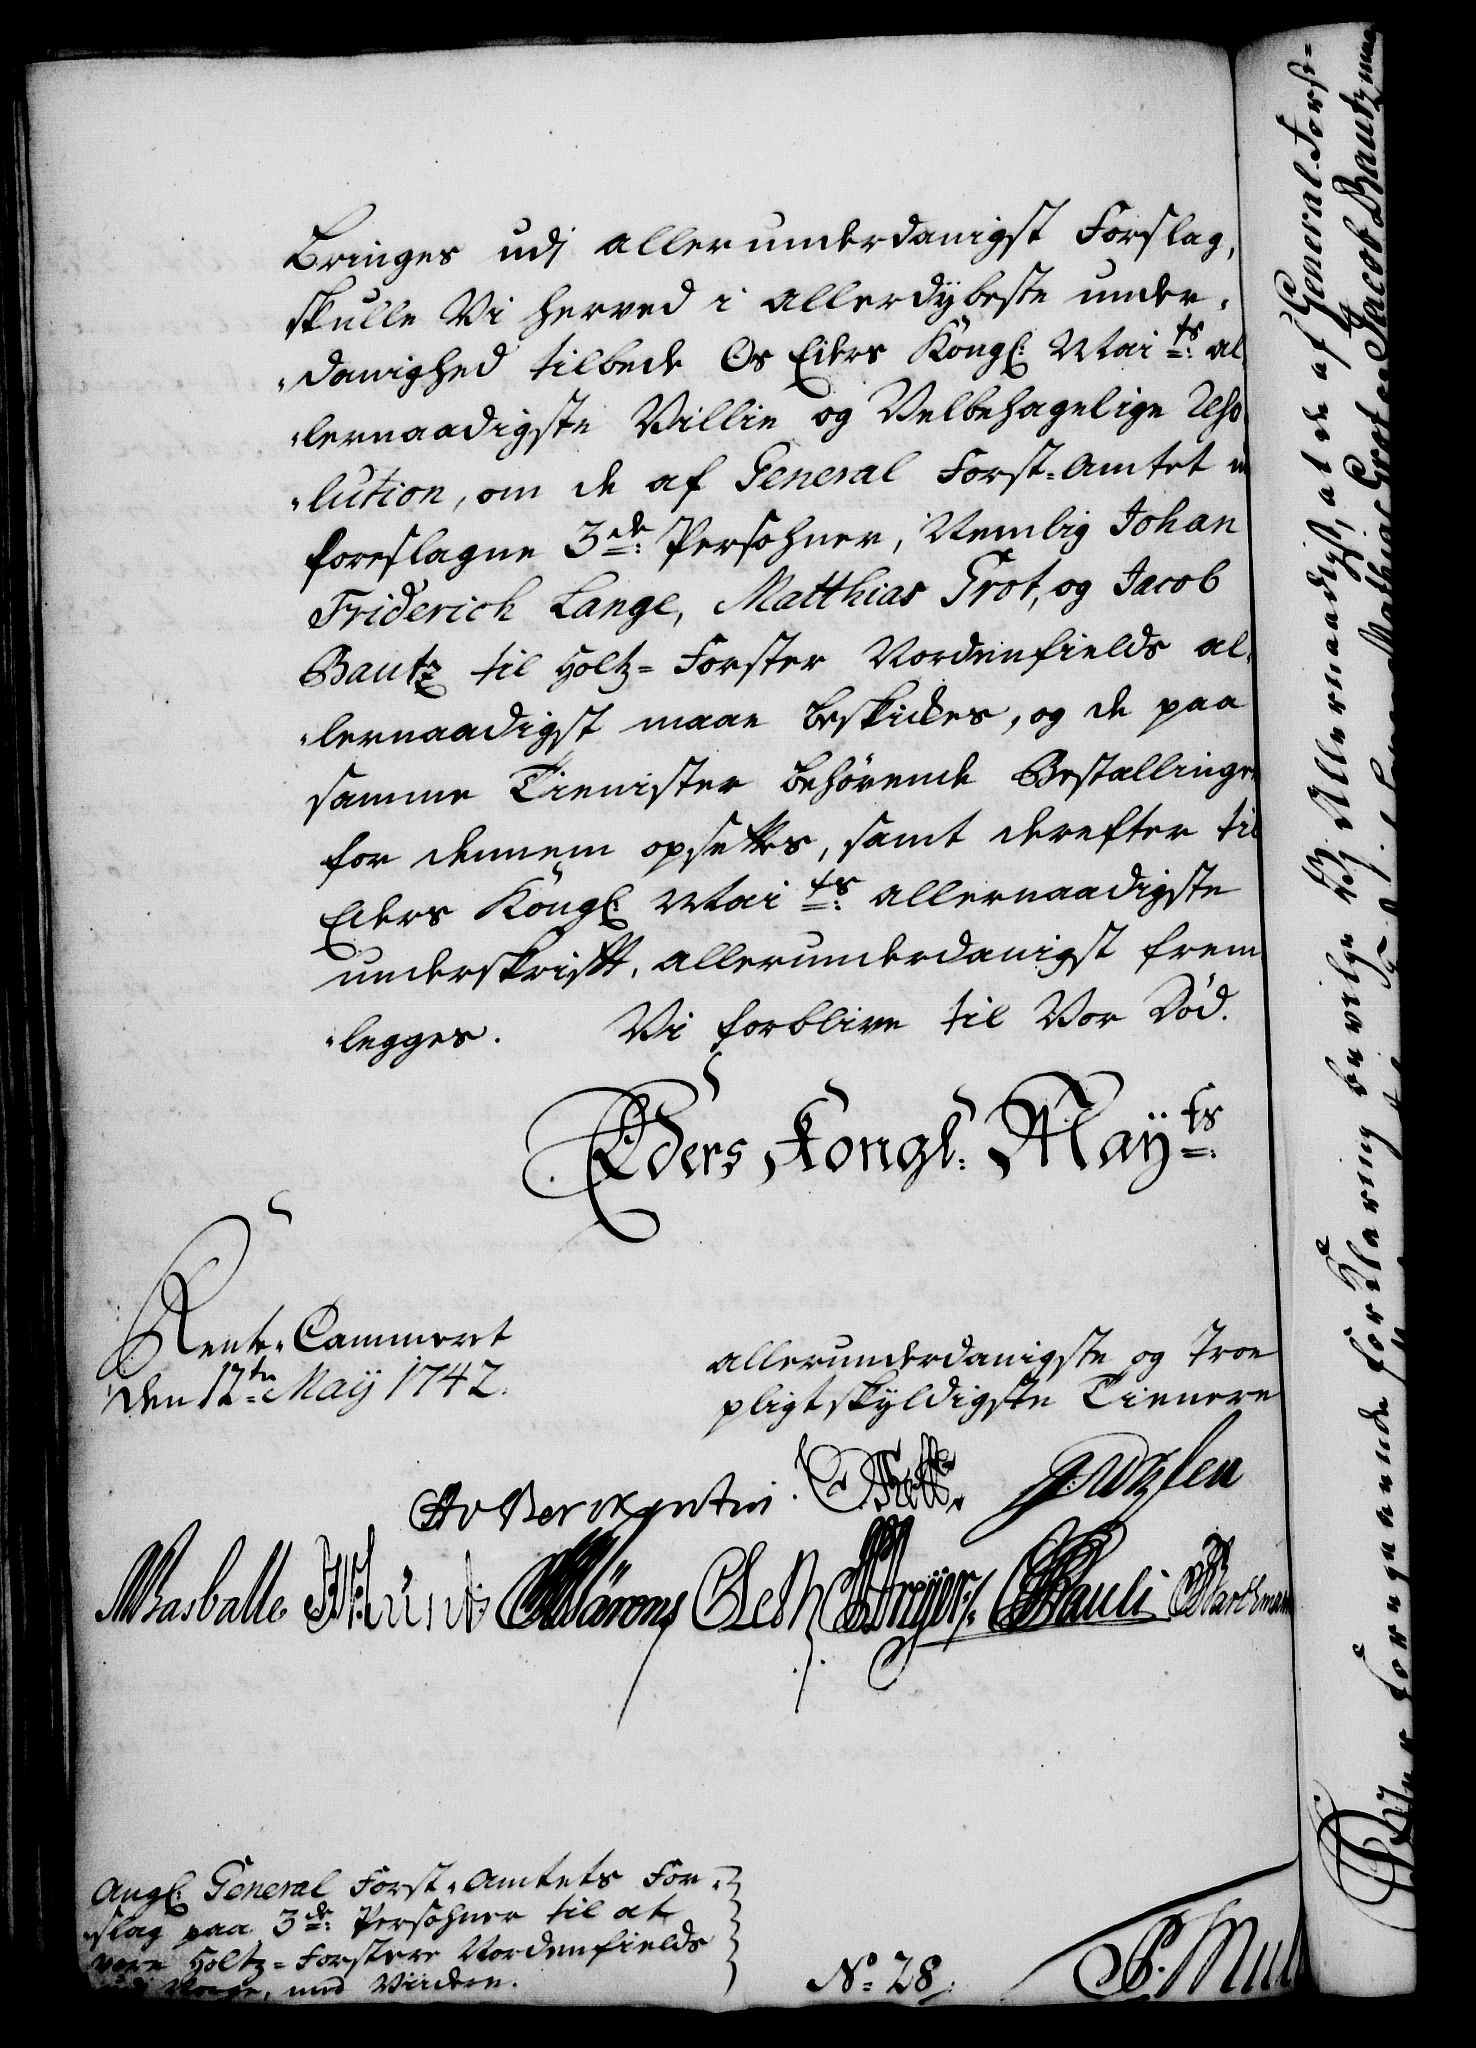 Bringes udj allerunderdanigst Forslag,
skulle Vi herved i allerdÿbeste under-
danighed tilbede Os Eders Köngl: Maits: al
lernaadigste Villie og Velbehagelige Reso
lution, om de af General Forst-Amtet
foreslagne 3de: Persohner, Nemblig Johan
Friderich Lange, Matthias Grot, og Jacob
Bautz til Holtz-Forster Nordenfields al-
lernaadigst maae beskickes, og de paa
samme Tienister behörende Bestallinger
for dennem opsettes, samt derefter til
Eders Köngl: Maits: allernaadigste
underskrifft, allerunderdanigst frem
legges. Vi forblive til Vor Död.
Eders Kongl: Maÿts:
Rente-Cammeret
den 12te: Maÿ 1742.
allerunderdanigste og Troe
pligtskÿldigste Tienere
Berckentin
Basballe Pauli
Angl: General Forst-Amtets For-
slag paa 3de: Persohner til at
være Holtz-Forstere Nordenfields
Norge, med Viidere.
No: 28.
Denne foregaaende forklaring bevilge Vj Allernaadigst, at de af General-Forst-
Mathias Grot og Jacob Bautz maa